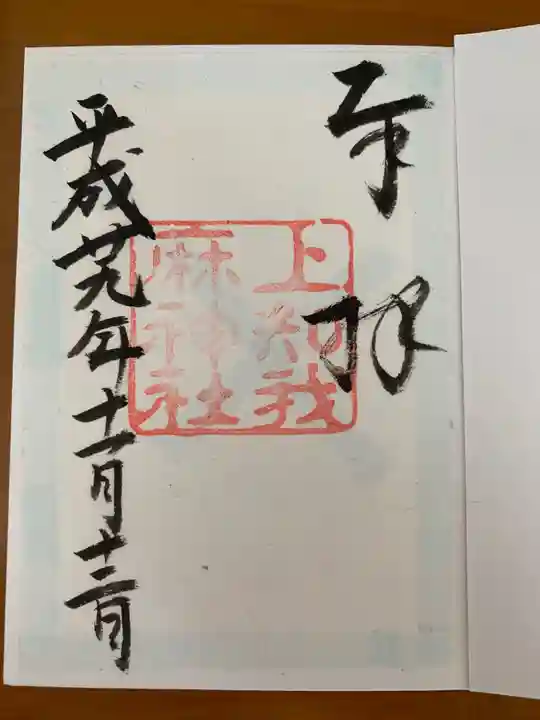 奉拝
上知我
麻神社
平成廿九年十一月十二日